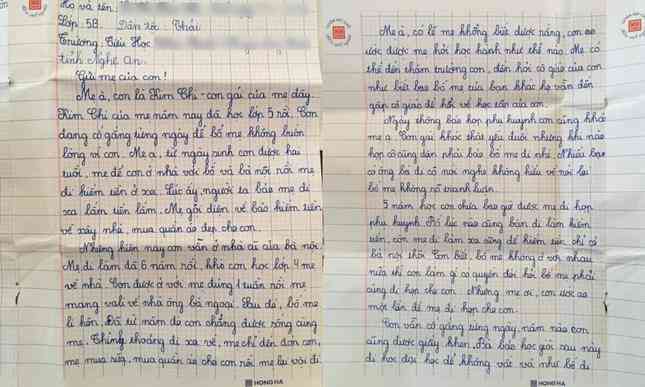 Họ và tên:
Lớp 5B. Dân tộc: Thái
Trường Tiểu Học
tỉnh Nghệ An.
Gửi mẹ của con!
Mẹ à, con là Kim Chi - con gái của mẹ đây.
Kim Chi của mẹ năm nay đã học lớp 5 rồi. Con
đang cố gắng từng ngày để bố mẹ không buồn
lòng vì con. Mẹ ạ, từ ngày sinh con được hai
tuổi, mẹ để con ở nhà với bố và bà nội rồi mẹ
đi kiếm tiền ở xa. Lúc ấy, người ta bảo mẹ đi
xa lắm tiền lắm. Mẹ gọi điện về bảo kiếm tiền
về xây nhà, mua quần áo đẹp cho con.
Nhưng hiện nay con vẫn ở nhà cũ của bà nội.
Mẹ đi làm đã 6 năm rồi, khi con học lớp 4 mẹ
về nhà. Con được ở với mẹ đúng 1 tuần rồi mẹ
mang vali về nhà ông bà ngoại. Sau đó, bố mẹ
li hôn. Đã từ năm đó con chẳng được sống cùng
mẹ. Thỉnh thoảng đi xa về, mẹ chỉ đến đón con,
mẹ mua sữa, mua quần áo cho con rồi mẹ lại vội đi.
HONG HA
Mẹ à, có lẽ mẹ không biết được rằng, con
ước được mẹ hỏi học hành như thế nào. Mẹ có
thể đến thăm trường con, đến hỏi cô giáo của con
như biết bao bố mẹ của bạn khác họ vẫn đến
gặp cô giáo để hỏi về học tập của con.
Ngày thông báo họp phụ huynh con cũng khóc
mẹ ạ. Con gái khóc thật yếu đuối nhưng khi nào
họp cô cũng dặn phải bảo bố mẹ đi nhé. Nhiều bạn
có ông bà đi có nói nghe không hiểu về nói lại
bố mẹ không rõ
5 năm học con chưa bao giờ được mẹ đi họp
phụ huynh. Bố lúc nào cũng bận đi làm kiếm
tiền, còn mẹ đi làm xa cũng để kiếm tiền, chỉ có
bà nội thôi. Con biết, bố mẹ không ở với nhau
nữa thì con làm gì có quyền đòi hỏi bố mẹ phải
cùng đi họp cho con. Nhưng mẹ ơi, con ước ao
một lần để mẹ đi họp cho con.
Con vẫn cố gắng từng ngày, năm nào con
cũng được giấy khen. Bà bảo học giỏi sau này
đi học đại học để không vất vả như bố đi
HONG HA